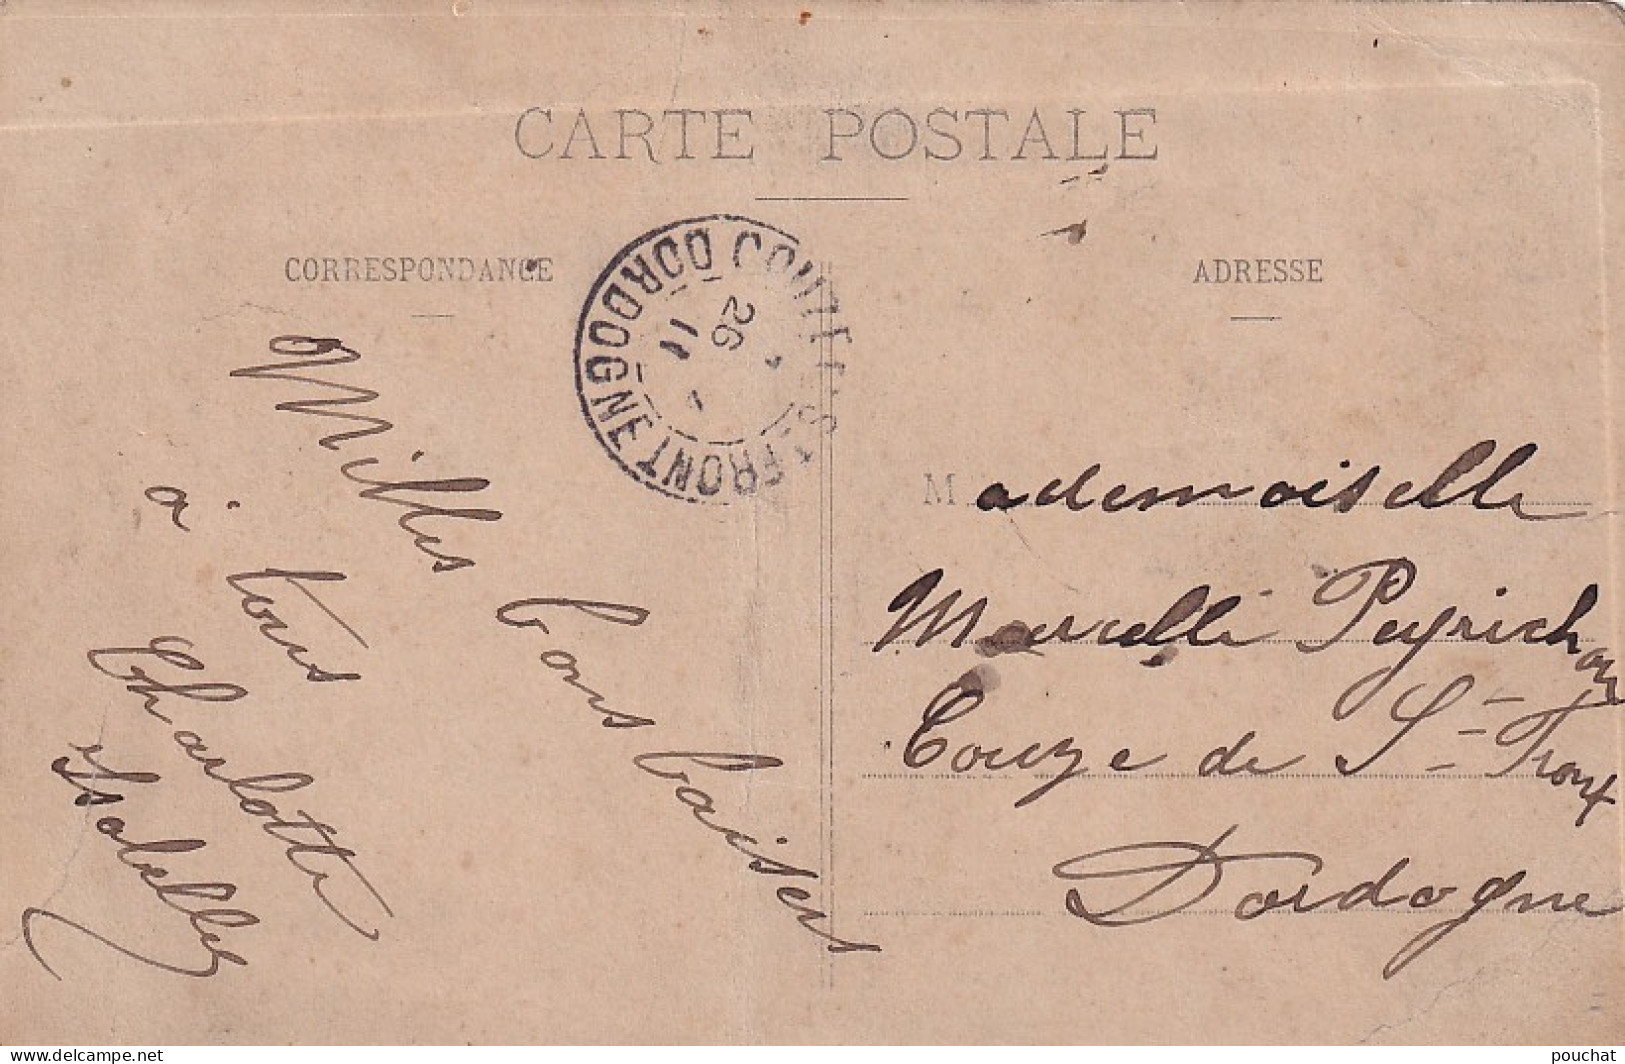 CARTE POSTALE
CORRESPONDANCE
ADRESSE
DORDOGNE
26
11
FRONT
Milles bons baisers
à tous
Charlotte
Isabelle
Mademoiselle
Marcelle Peyrichou
Couze de St-Front
Dordogne
delcampe.net
pouchat